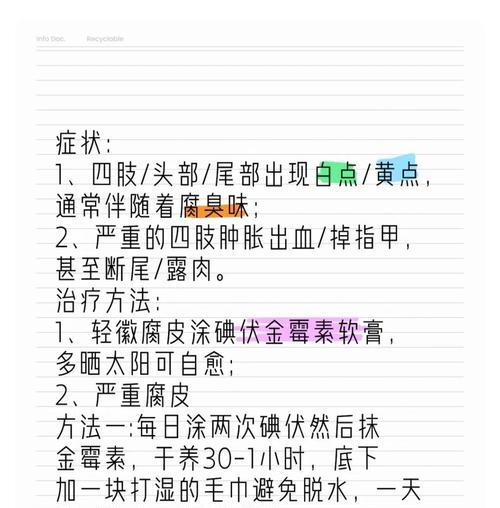 Info Doc.    Recyclable
症状:
1、四肢/头部/尾部出现白点/黄点,
通常伴随着腐臭味;
2、严重的四肢肿胀出血/掉指甲,
甚至断尾/露肉。
治疗方法:
1、轻徽腐皮涂碘伏金霉素软膏,
多晒太阳可自愈;
2、严重腐皮
方法一:每日涂两次碘伏然后抹
金霉素，干养30-1小时，底下
加一块打湿的毛巾避免脱水，一天